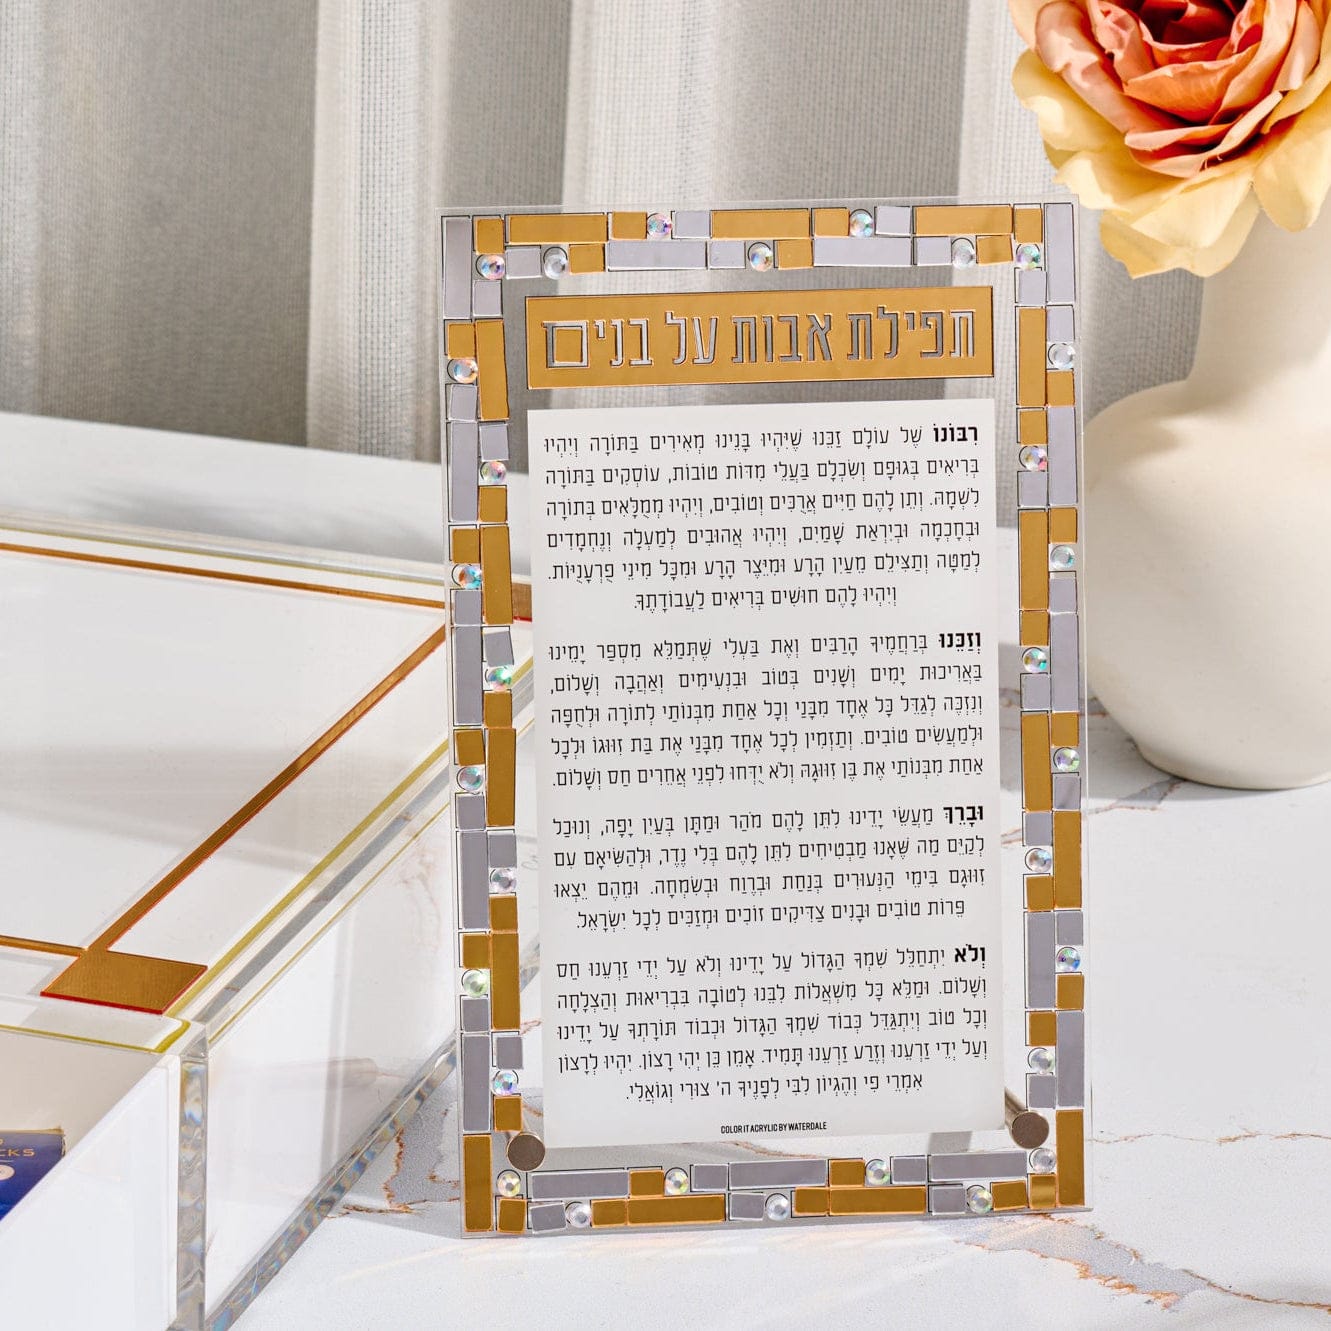 תפילת אבות על בנים
רִבּוֹנוֹ שֶׁל עוֹלָם זַכֵּנוּ שֶׁיִּהְיוּ בָּנֵינוּ מְאִירִים בַּתּוֹרָה וְיִהְיוּ
בְּרִיאִים בְּגוּפָם וְשִׂכְלָם בַּעֲלֵי מִדּוֹת טוֹבוֹת, עוֹסְקִים בַּתּוֹרָה
לִשְׁמָהּ. וְתֵן לָהֶם חַיִּים אֲרֻכִּים וְטוֹבִים, וְיִהְיוּ מְמֻלָּאִים בְּתוֹרָה
וּבְחָכְמָה וּבְיִרְאַת שָׁמַיִם, וְיִהְיוּ אֲהוּבִים לְמַעְלָה וְנֶחְמָדִים
לְמַטָּה וְתַצִּילֵם מֵעַיִן הָרָע וּמִיֵּצֶר הָרָע וּמִכָּל מִינֵי פֻּרְעָנֻיּוֹת.
וְיִהְיוּ לָהֶם חוּשִׁים בְּרִיאִים לַעֲבוֹדָתֶךָ.
וְזַכֵּנוּ בְּרַחֲמֶיךָ הָרַבִּים וְאֶת בַּעְלִי שֶׁתְּמַלֵּא מִסְפַּר יָמֵינוּ
בַּאֲרִיכוּת יָמִים וְשָׁנִים בְּטוֹב וּבִנְעִימִים וְאַהֲבָה וְשָׁלוֹם,
וְנִזְכֶּה לְגַדֵּל כָּל אֶחָד מִבָּנַי וְכָל אַחַת מִבְּנוֹתַי לְתוֹרָה וּלְחֻפָּה
וּלְמַעֲשִׂים טוֹבִים. וְתַזְמִין לְכָל אֶחָד מִבָּנַי אֶת בַּת זִוּוּגוֹ וּלְכָל
אַחַת מִבְּנוֹתַי אֶת בֶּן זִוּוּגָהּ וְלֹא יִדָּחוּ לִפְנֵי אֲחֵרִים חַס וְשָׁלוֹם.
וּבָרֵךְ מַעֲשֵׂי יָדֵינוּ לִתֵּן לָהֶם מֹהַר וּמַתָּן בְּעַיִן יָפָה, וְנוּכַל
לְקַיֵּם מַה שֶּׁאָנוּ מַבְטִיחִים לִתֵּן לָהֶם בְּלִי נֶדֶר, וּלְהַשִּׂיאָם עִם
זִוּוּגָם בִּימֵי הַנְּעוּרִים בְּנַחַת וּבְרֶוַח וּבְשִׂמְחָה. וּמֵהֶם יֵצְאוּ
פֵּרוֹת טוֹבִים וּבָנִים צַדִּיקִים זוֹכִים וּמְזַכִּים לְכָל יִשְׂרָאֵל.
וְלֹא יִתְחַלֵּל שִׁמְךָ הַגָּדוֹל עַל יָדֵינוּ וְלֹא עַל יְדֵי זַרְעֵנוּ חַס
וְשָׁלוֹם. וּמַלֵּא כָּל מִשְׁאֲלוֹת לִבֵּנוּ לְטוֹבָה בִּבְרִיאוּת וְהַצְלָחָה
וְכָל טוֹב וְיִתְגַּדֵּל כְּבוֹד שִׁמְךָ הַגָּדוֹל וּכְבוֹד תּוֹרָתְךָ עַל יָדֵינוּ
וְעַל יְדֵי זַרְעֵנוּ וְזֶרַע זַרְעֵנוּ תָּמִיד. אָמֵן כֵּן יְהִי רָצוֹן. יִהְיוּ לְרָצוֹן
אִמְרֵי פִי וְהֶגְיוֹן לִבִּי לְפָנֶיךָ ה' צוּרִי וְגוֹאֲלִי.
COLOR IT ACRYLIC BY WATERDALE